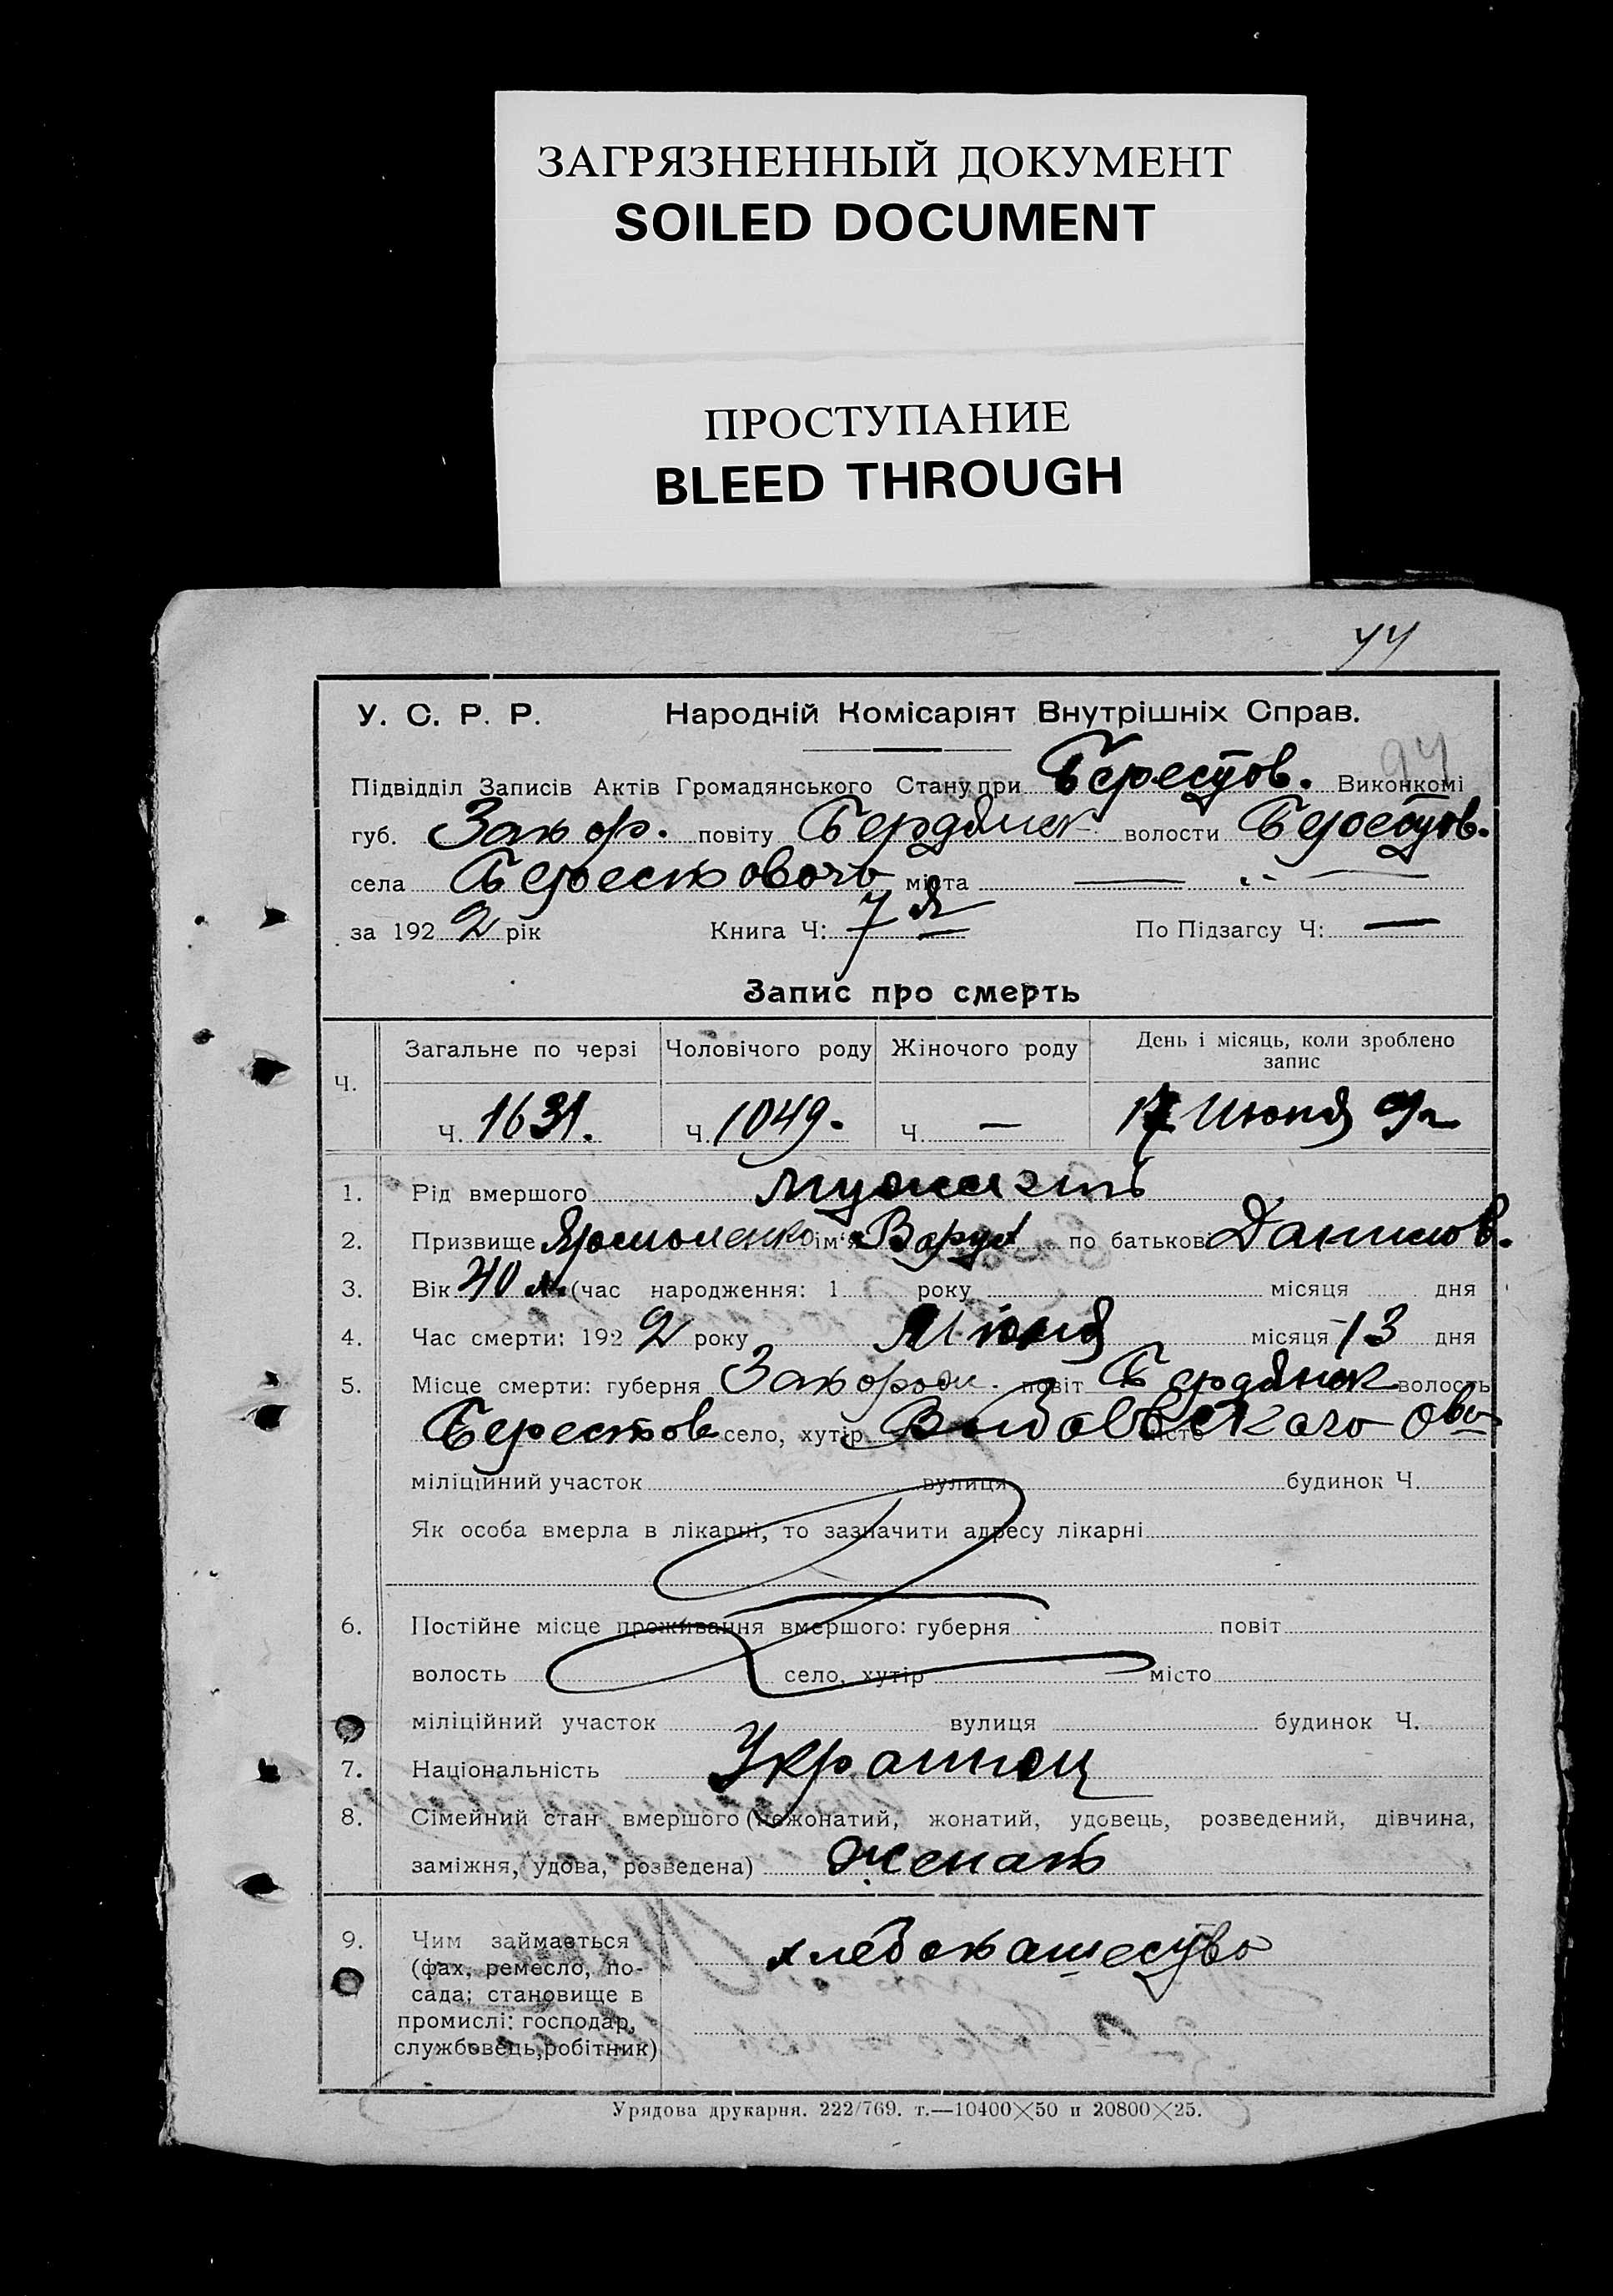 ЗАГРЯЗНЕННЫЙ ДОКУМЕНТ
SOILED DOCUMENT
ПРОСТУПАНИЕ
BLEED THROUGH
У. С. Р. Р. Народній Комісаріят Внутрішніх Справ.
Підвідділ Записів Актів Громадянського Стану при Берестов. Виконкомі
губ. Запор. повіту Бердянск волости Берестов.
села міста —
за 1922 рік Книга Ч: 7 По Підзагсу Ч: —
Запис про смерть
Загальне по черзі Чоловічого роду Жіночого роду День і місяць, коли зроблено запис
Ч. Ч. 1631. Ч. 1049. Ч. — 17 Июня
1. Рід вмершого
2. Призвище ім'я по батькові Данилов.
3. Вік 40 л. (час народження: 1 року місяця дня
4. Час смерти: 1922 року Июня місяця 13 дня
5. Місце смерти: губерня повіт Бердянск волость
Берестов село, хутір місто
міліційний участок вулиця будинок Ч.
Як особа вмерла в лікарні, то зазначити адресу лікарні
6. Постійне місце проживання вмершого: губерня повіт
волость село, хутір місто
міліційний участок вулиця будинок Ч.
7. Національність Украинец
8. Сімейний стан вмершого (нежонатий, жонатий, удовець, розведений, дівчина,
заміжня, удова, розведена) Женат
9. Чим займається хлебопашество
(фах, ремесло, по-
сада; становище в
промислі: господар,
службовець, робітник)
Урядова друкарня. 222/769. т.—10400×50 и 20800×25.